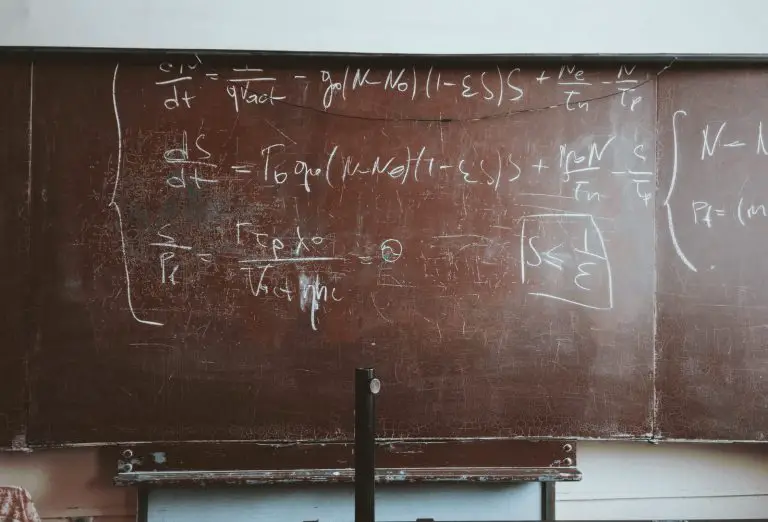 dN/dt = I/qVact - g₀(N-N₀)(1-εS)S + Ne/τn - N/τp
dS/dt = Γg₀(N-N₀)(1-εS)S + N/τn - S/τp
S/Pf = Γτpλ₀/Vactηhc = ϑ
S ≤ 1/ε
N - N
Pf = (m